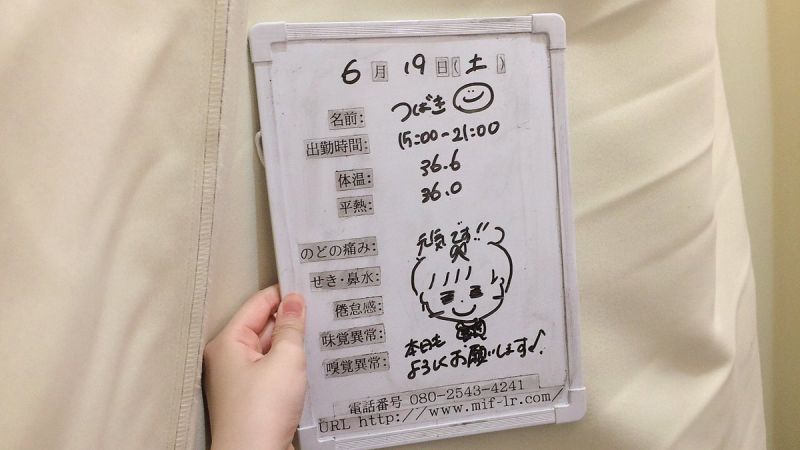 6月 19日(土)
名前: つばき
出勤時間: 15:00-21:00
体温: 36.6
平熱: 36.0
のどの痛み:
せき・鼻水:
倦怠感:
味覚異常:
嗅覚異常:
元気です!!
本日も
よろしくお願いします♪
電話番号 080-2543-4241
URL http://www.mif-lr.com/